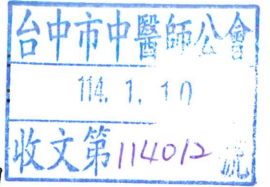 台中市中醫師公會
114. 1. 10
收文第114012號